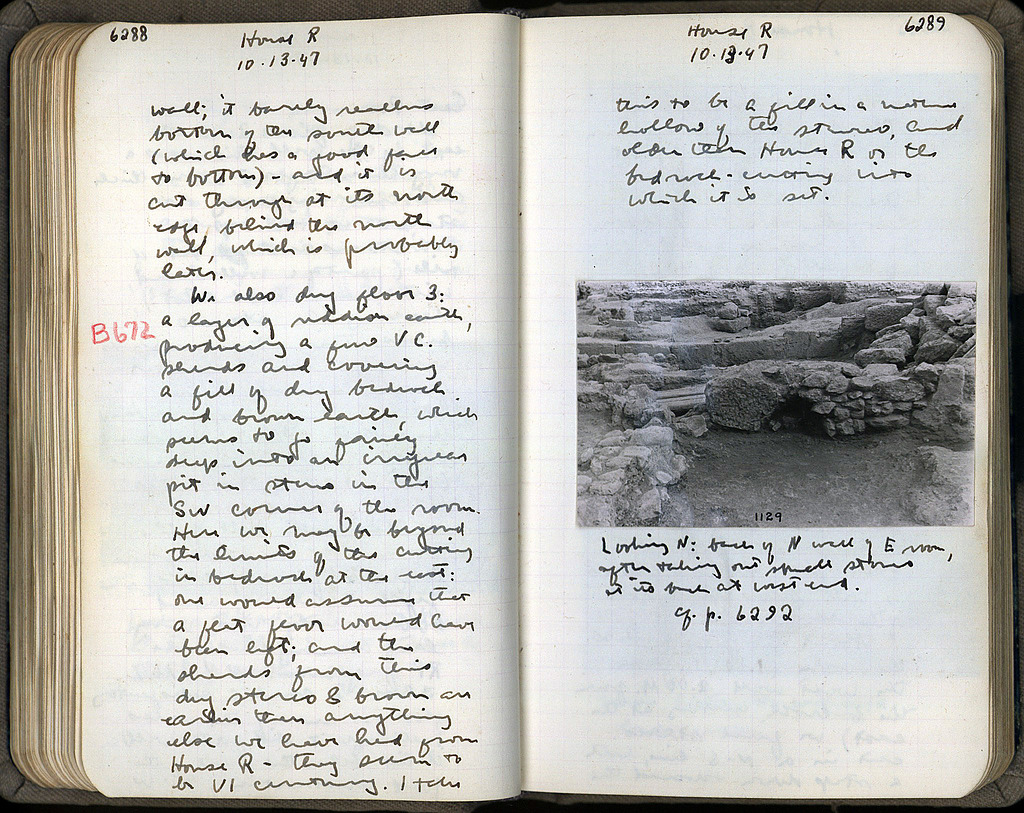 6288
House R
10.13.47
wall; it barely reaches
bottom of the south wall
(which has a good face
to bottom) - and it is
cut through at its north
edge, behind the north
wall, which is probably
later.
We also dug floor 3:
B672
a layer of reddish earth,
producing a few V C.
sherds and covering
a fill of dug bedrock
and brown earth, which
seems to go fairly
deep into an irregular
pit in stereo in the
SW corner of the room.
Here we may be beyond
the limits of the cutting
in bedrock at the east:
one would assume that
a flat floor would have
been left; and the
sherds from this
dug stereo & brown are
earlier than anything
else we have had from
House R - they seem to
be VI century. I take
6289
House R
10.13.47
this to be a fill in a natural
hollow of the stereo, and
older than House R or the
bedrock-cutting into
which it is set.
1129
Looking N: back of N wall of E room,
after taking out small stones
at its back at west end.
cf. p. 6292